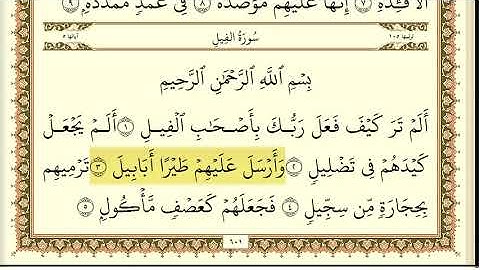 ٱلْأَفْـِٔدَةِ ٧ إِنَّهَا عَلَيْهِم مُّؤْصَدَةٌ ٨ فِى عَمَدٍ مُّمَدَّدَةٍۭ ٩
ترتيبها ١٠٥ سُورَةُ الفِيلِ آياتها ٥
بِسْمِ ٱللَّهِ ٱلرَّحْمَٰنِ ٱلرَّحِيمِ
أَلَمْ تَرَ كَيْفَ فَعَلَ رَبُّكَ بِأَصْحَٰبِ ٱلْفِيلِ ١ أَلَمْ يَجْعَلْ
كَيْدَهُمْ فِى تَضْلِيلٍ ٢ وَأَرْسَلَ عَلَيْهِمْ طَيْرًا أَبَابِيلَ ٣ تَرْمِيهِم
بِحِجَارَةٍ مِّن سِجِّيلٍ ٤ فَجَعَلَهُمْ كَعَصْفٍ مَّأْكُولٍۭ ٥
٦٠١